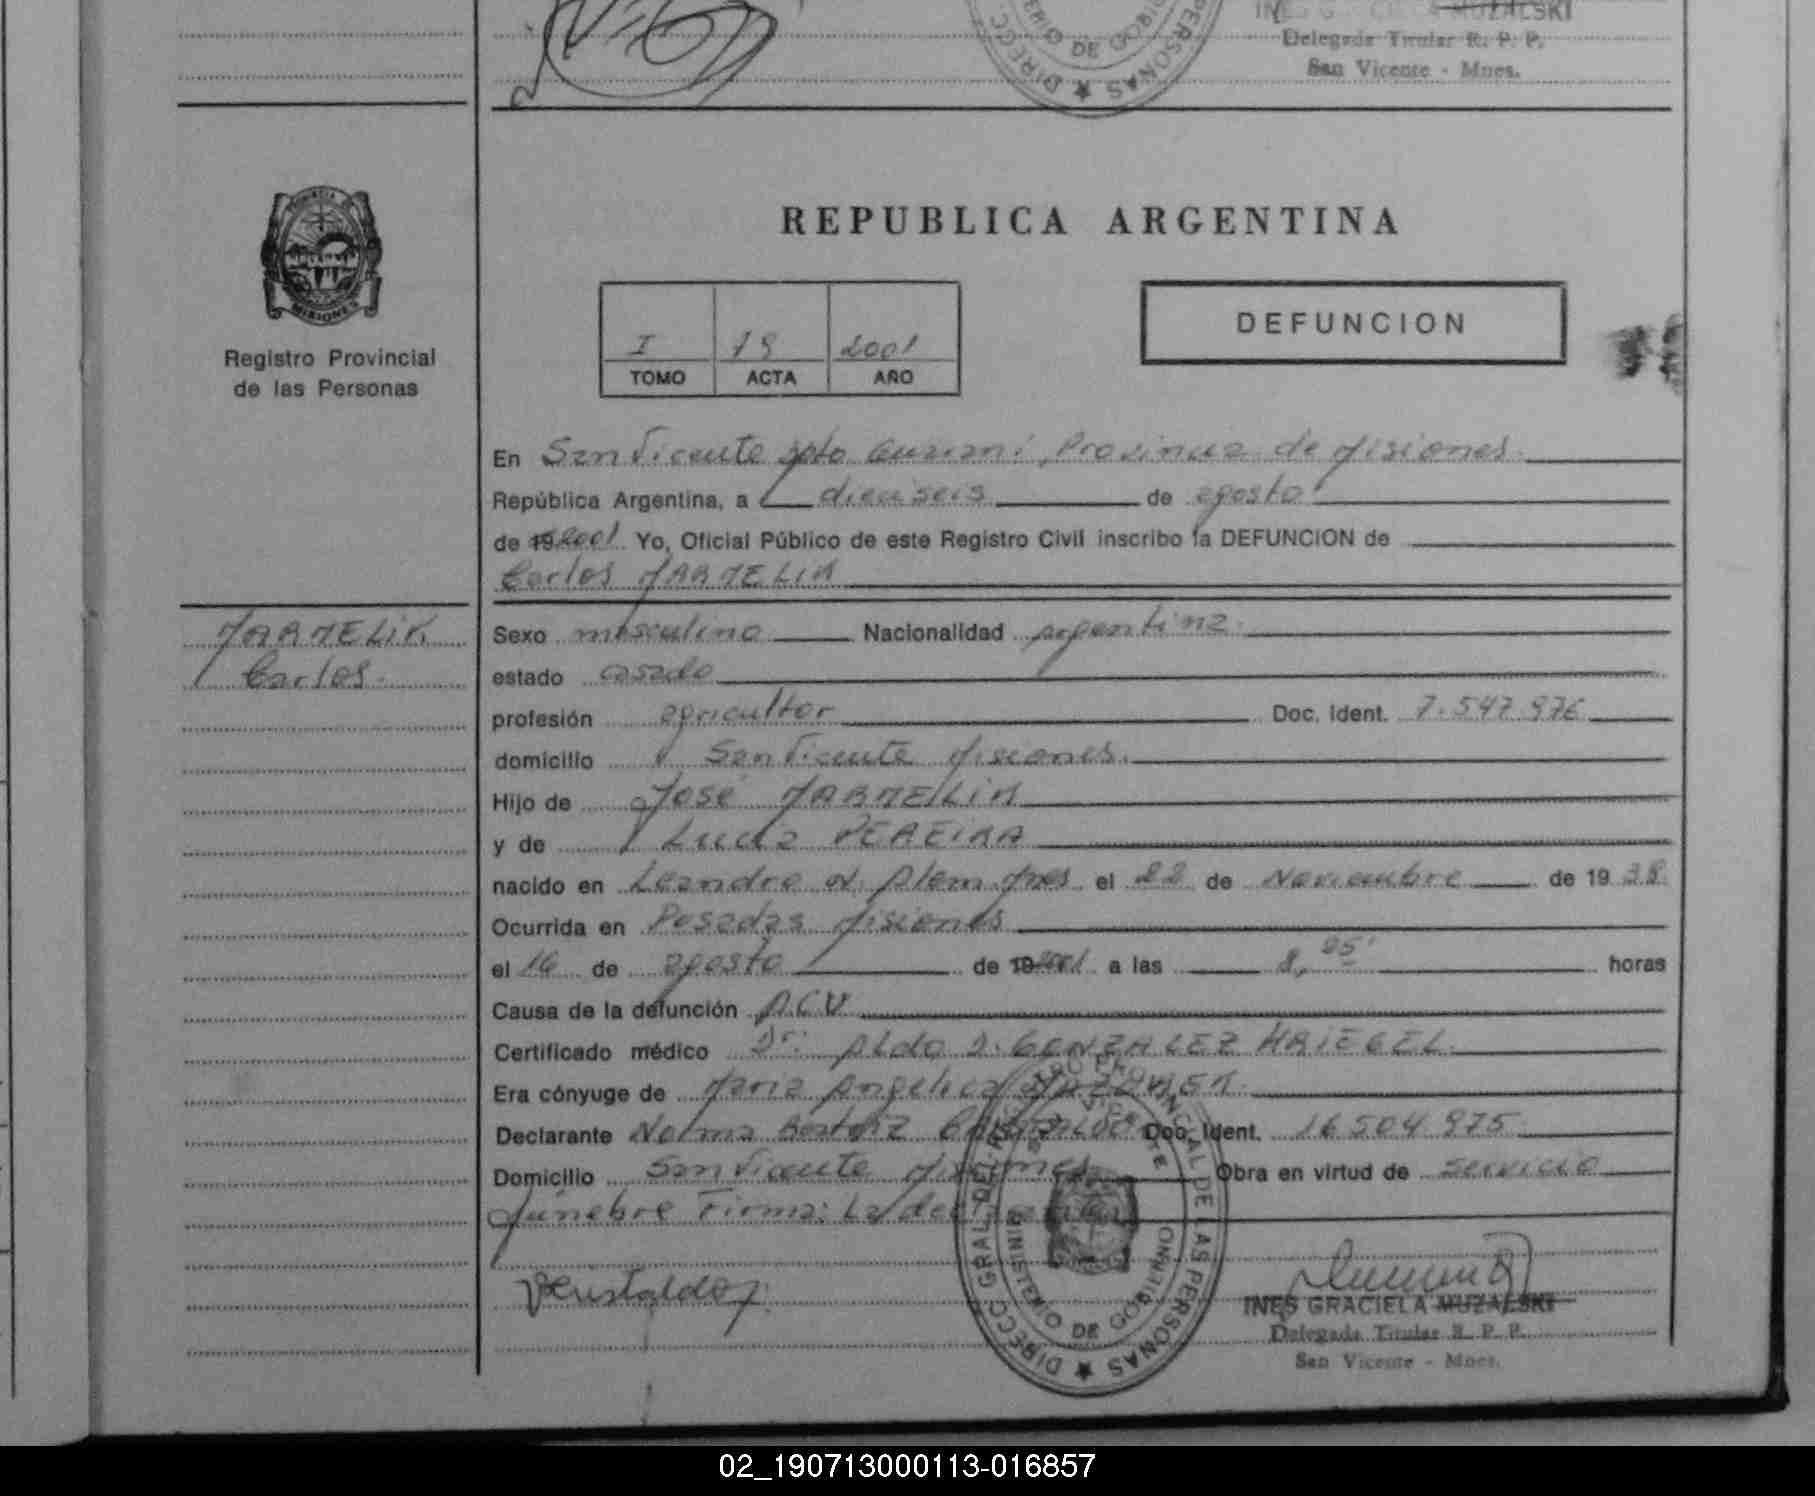 INES G
Delegada Titular R. P. P.
San Vicente - Mnes.
REPUBLICA ARGENTINA
PROVINCIA DE
MISIONES
Registro Provincial
de las Personas
I 79 2001
TOMO ACTA AÑO
DEFUNCION
En San Vicente Dpto Guarani, Provincia de Misiones
República Argentina, a dieciseis de agosto
de 19 2001 Yo, Oficial Público de este Registro Civil inscribo la DEFUNCION de
Carlos MARMELIK
MARMELIK
Carlos.
Sexo masculino Nacionalidad argentina
estado casado
profesión agricultor Doc. Ident. 7.547.976
domicilio San Vicente Misiones.
Hijo de José MARMELIK
y de Lucia PEREIRA
nacido en Leandro N. Alem Mnes el 22 de Noviembre de 19 38
Ocurrida en Posadas Misiones
el 16 de agosto de 19 2001 a las 8, horas
Causa de la defunción ACV
Certificado médico Dr. Aldo D. GONZALEZ KRIEGEL
Era cónyuge de Maria Angelica
Declarante Norma Beatriz Doc. Ident. 16504975
Domicilio San Vicente Misiones Obra en virtud de servicio
fúnebre Firma: La declarante
DIRECC. GRAL. DEL REGISTRO PROVINCIAL DE LAS PERSONAS
SAN VICENTE
MINISTERIO DE GOBIERNO
INES GRACIELA MUZALSKI
Delegada Titular R. P. P.
San Vicente - Mnes.
02_190713000113-016857